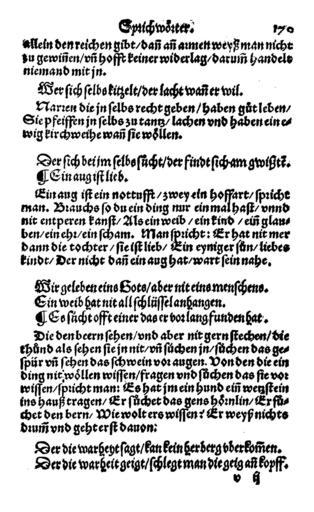 Sprichwörter. 170
allein den reichen gibt/ dañ añ armen weyß man nicht
zu gewiñen/ vñ hofft keiner widerlag/ darum̃ handels
niemand mit jn.
Wer sich selbs kitzelt/ der lacht wañ er wil.
Narren die jn selbs recht geben/ haben gůt leben/
Sie pfeiffen jn selbs zu tantz/ lachen vnd haben ein e⸗
wig kirchweihe wañ sie wöllen.
Der sich bei jm selbs sůcht/ der findt sich am gwißtẽ.
¶ Ein aug ist lieb.
Ein aug ist ein nottufft/ zwey ein hoffart/ spricht
man. Brauchs so du ein ding nur ein mal hast/ vnnd
nit entperen kanst/ Als ein weib/ ein kind/ eiñ glau⸗
ben/ ein ehr/ ein scham. Man spricht: Er hat nit mer
dann die tochter/ sie ist lieb/ Ein eyniger sün/ liebes
kindt/ Der nicht dañ ein aug hat/ wart sein nahe.
Wir geleben eins Gots/ aber nit eins menschens.
Ein weib hat nit all schlüssel anhangen.
¶ Es sůcht offt einer das er vorlang funden hat.
Die den beern sehen/ vnd aber nit gern stechen/ die
thůnd als sehen sie jn nit/ vñ sůchen jn/ sůchen das ge⸗
spür vñ sehen das schwein vor augen. Von den die ein
ding nit wöllen wissen/ fragen vnd sůchen das sie vor
wissen/ spricht man: Es hat jm ein hund ein wetzstein
ins hauß tragen/ Er sůchet das gens hörnlin/ Er sů⸗
chet den bern/ Wie wolt ers wissen? Er weyß nichts
drum̃ vnd geht erst dauon:
Der die warheyt sagt/ kan kein herberg vberkom̃en.
Der die warheit geigt/ schlegt man die geig an kopff.
v ij